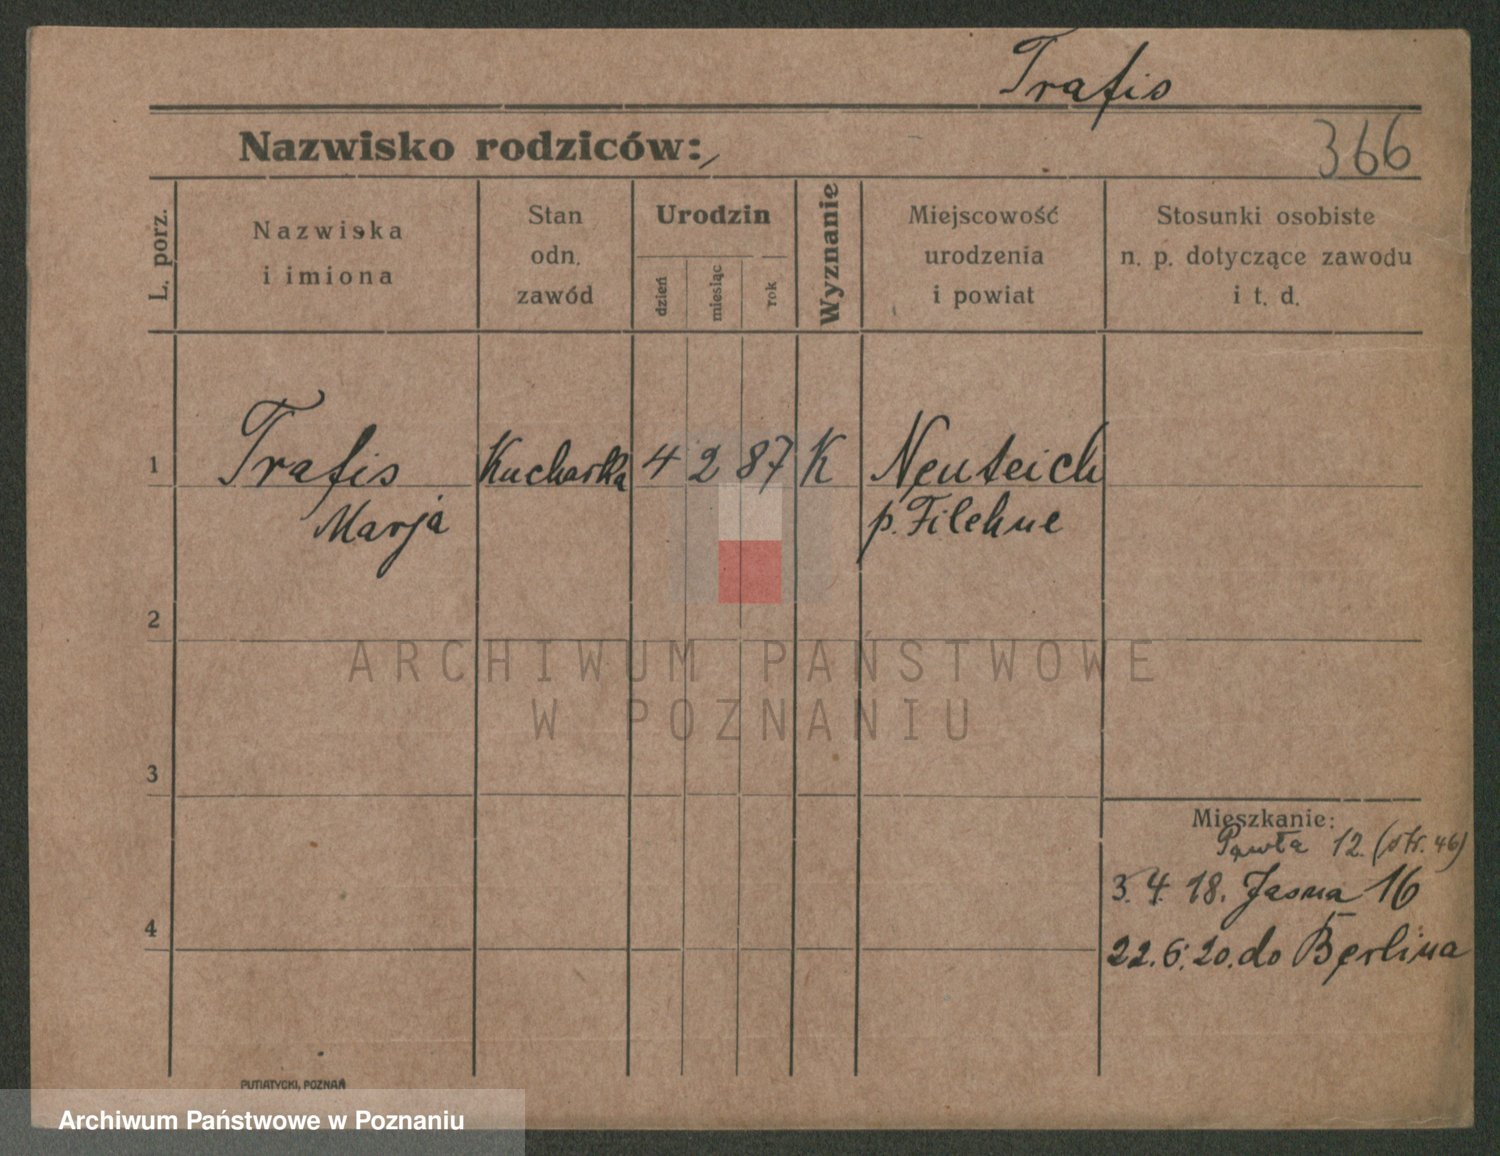 Trafis
Nazwisko rodziców:
366
L. porz.
Nazwiska
i imiona
Stan
odn.
zawód
Urodzin
dzień
miesiąc
rok
Wyznanie
Miejscowość
urodzenia
i powiat
Stosunki osobiste
n. p. dotyczące zawodu
i t. d.
1
Trafis
Marja
Kucharka
4 2 87
K
Neuteich
p. Filehne
2
ARCHIWUM PAŃSTWOWE
W POZNANIU
3
Mieszkanie:
Pawła 12. (str. 46)
3. 4. 18. Jasna 16
4
22. 6. 20. do Berlina
PUTIATYCKI, POZNAŃ
Archiwum Państwowe w Poznaniu